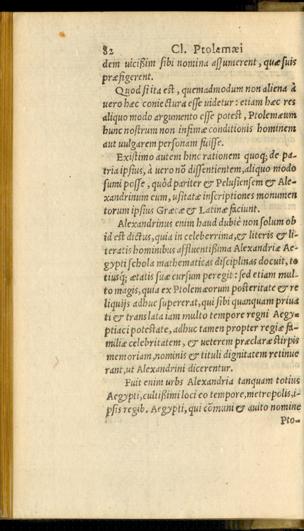 82 Cl. Ptolemæi
dem uicißim sibi nomina assumerent, quæ suis
præfigerent.
Quod si ita est, quemadmodum non aliena à
uero hæc coniectura esse uidetur: etiam hæc res
aliquo modo argumento esse potest, Ptolemæum
hunc nostrum non infimæ conditionis hominem
aut uulgarem personam fuisse.
Existimo autem hinc rationem quoq; de pa-
tria ipsius, à uero nō dissentientem, aliquo modo
sumi posse, quòd pariter & Pelusiensem & Ale-
xandrinum eum, usitatæ inscriptiones monumen
torum ipsius Græcæ & Latinæ faciunt.
Alexandrinus enim haud dubiè non solum ob
id est dictus, quia in celeberrima, & literis & li-
teratis hominibus affluentißima Alexandriæ Ae-
gypti schola mathematicas disciplinas docuit, to
tiusq; ætatis suæ cursum peregit: sed etiam mul-
to magis, quia ex Ptolemæorum posteritate & re
liquijs adhuc supererat, qui sibi quanquam priua
ti & translata iam multo tempore regni Aegy-
ptiaci potestate, adhuc tamen propter regiæ fa-
miliæ celebritatem, & ueterem præclaræ stirpis
memoriam, nominis & tituli dignitatem retinue
rant, ut Alexandrini dicerentur.
Fuit enim urbs Alexandria tanquam totius
Aegypti, cultißimi loci eo tempore, metropolis, i-
psis regib. Aegypti, qui cōmani & auito nomine
Pto-